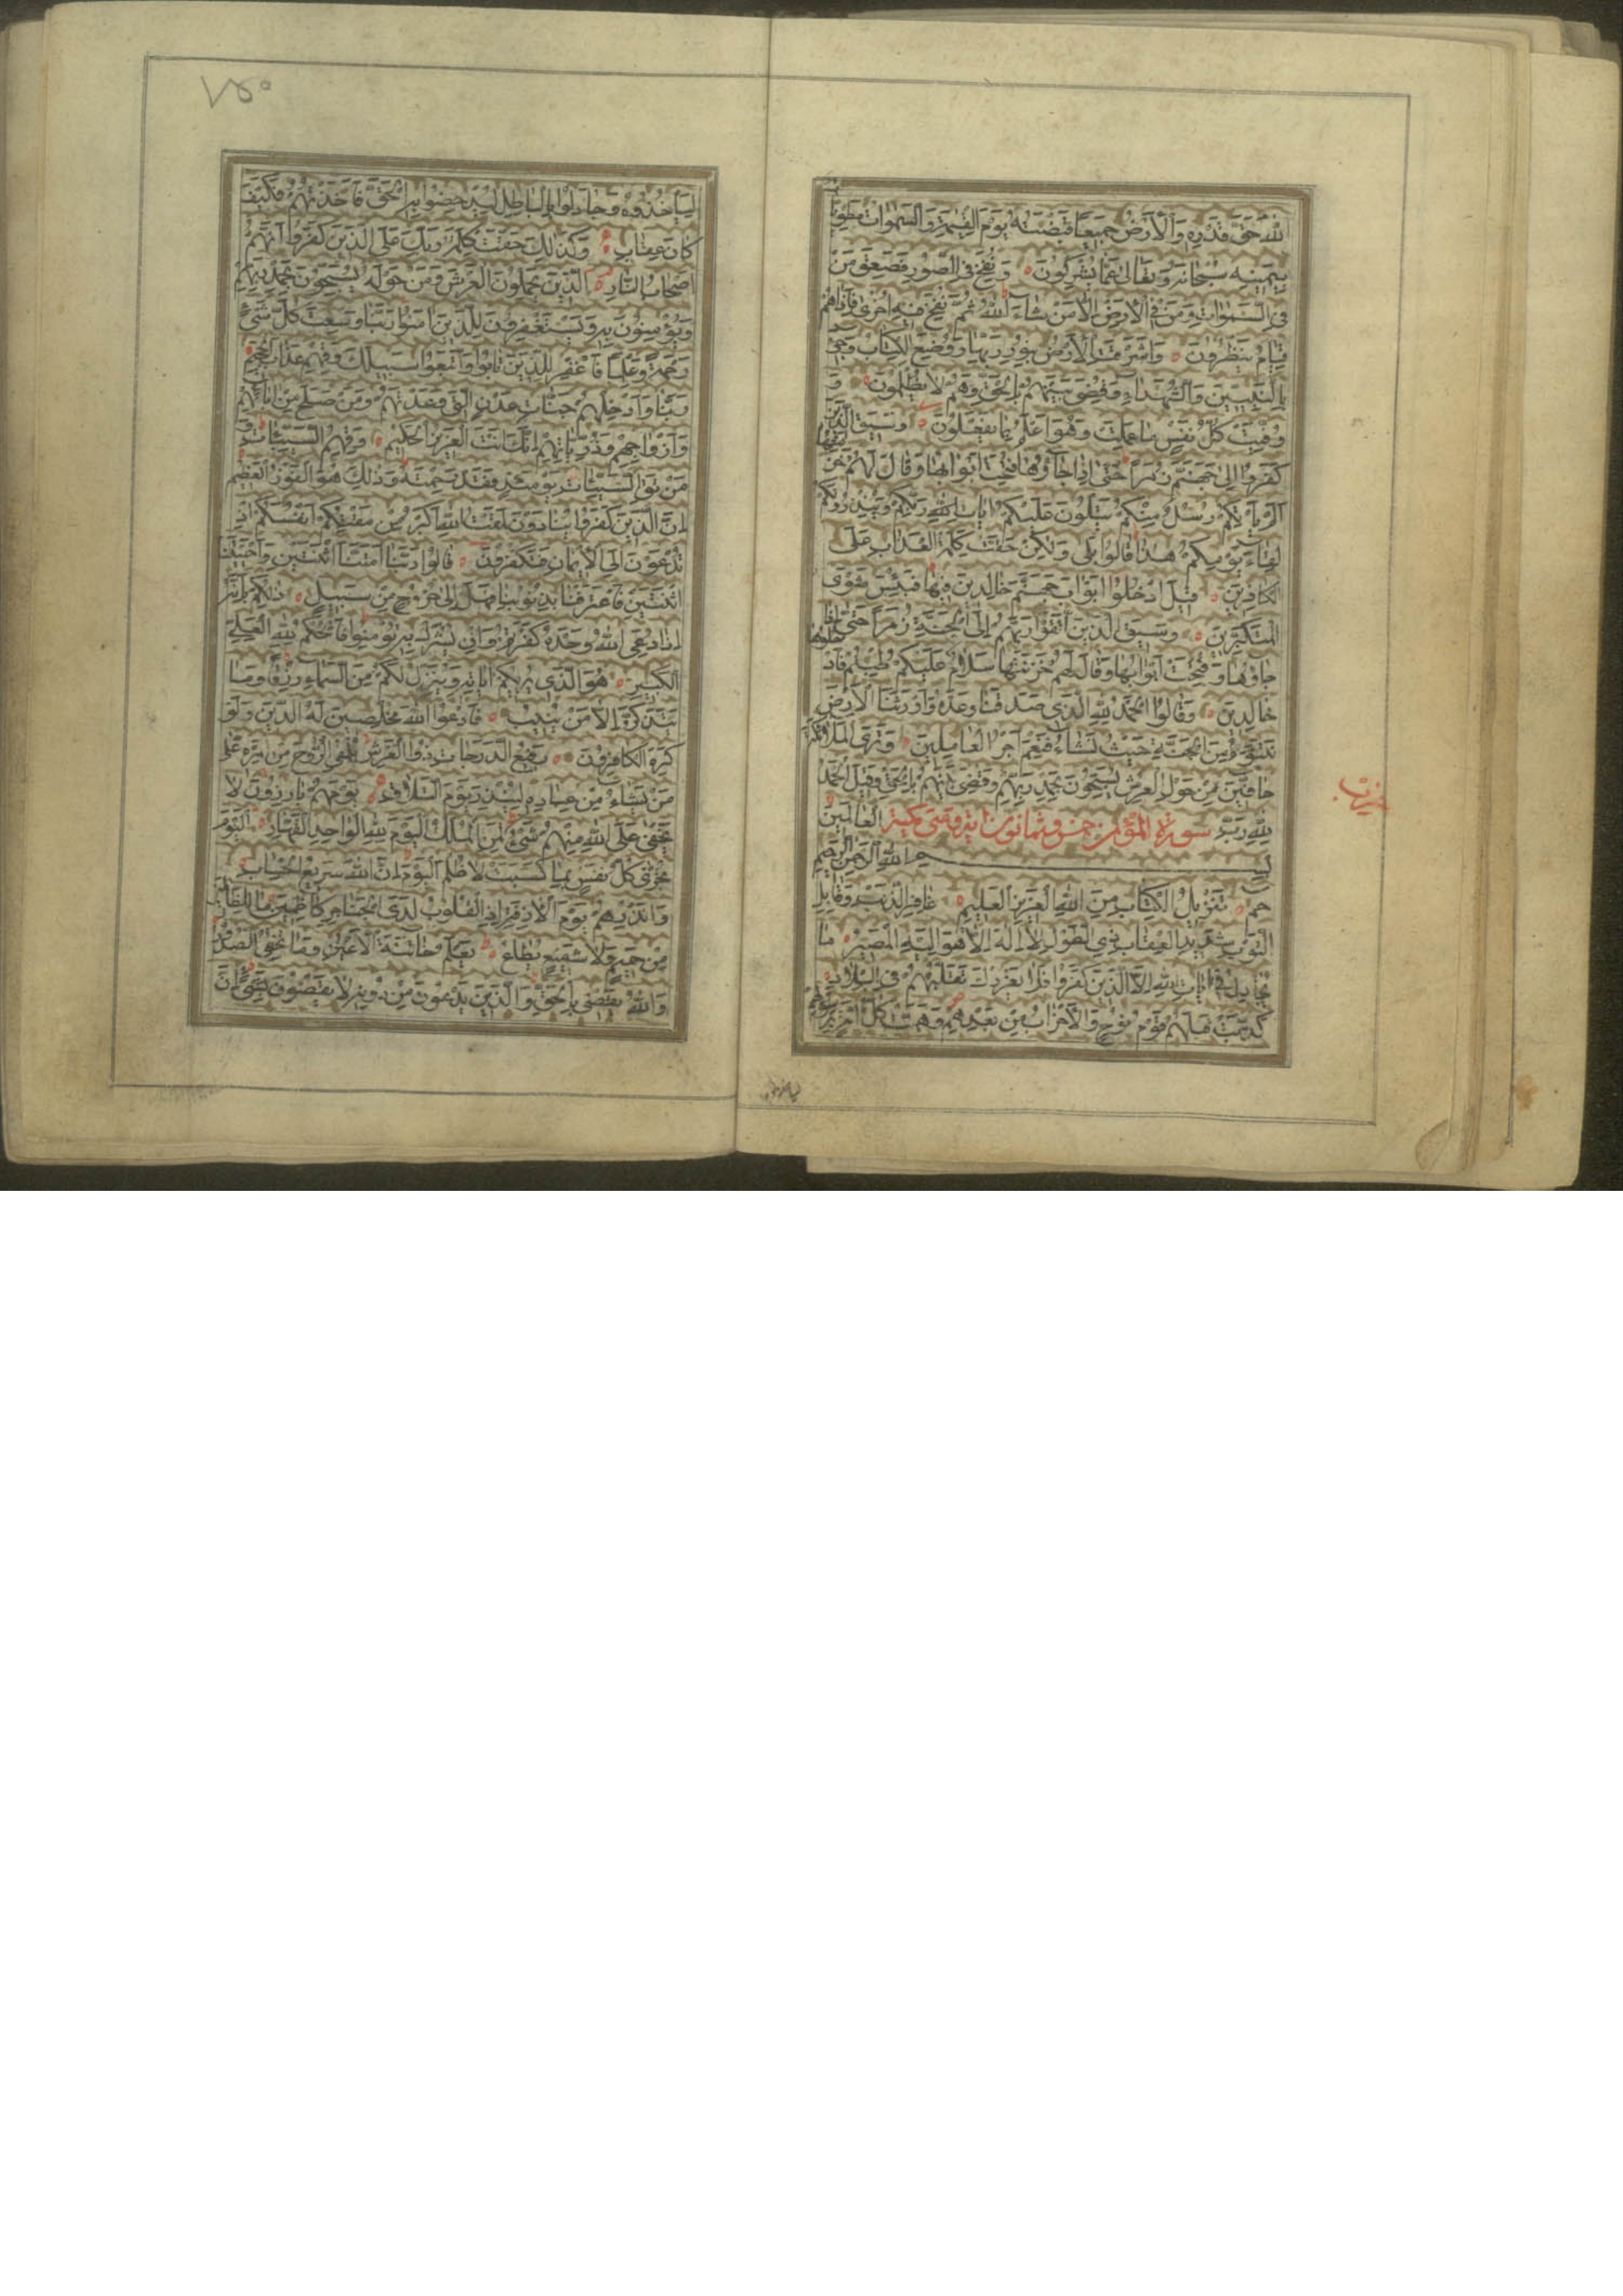 اللهَ حَقَّ قَدْرِهِ وَالْأَرْضُ جَمِيعًا قَبْضَتُهُ يَوْمَ الْقِيٰمَةِ وَالسَّمٰوَاتُ مَطْوِيَّاتٌ
بِيَمِينِهِ سُبْحَانَهُ وَتَعَالَىٰ عَمَّا يُشْرِكُونَ ۝ وَنُفِخَ فِي الصُّورِ فَصَعِقَ مَنْ
فِي السَّمٰوَاتِ وَمَنْ فِي الْأَرْضِ إِلَّا مَنْ شَاءَ اللهُ ثُمَّ نُفِخَ فِيهِ أُخْرَىٰ فَإِذَا هُمْ
قِيَامٌ يَنْظُرُونَ ۝ وَأَشْرَقَتِ الْأَرْضُ بِنُورِ رَبِّهَا وَوُضِعَ الْكِتَابُ وَجِيءَ
بِالنَّبِيِّينَ وَالشُّهَدَاءِ وَقُضِيَ بَيْنَهُمْ بِالْحَقِّ وَهُمْ لَا يُظْلَمُونَ ۝ وَ
وُفِّيَتْ كُلُّ نَفْسٍ مَا عَمِلَتْ وَهُوَ أَعْلَمُ بِمَا يَفْعَلُونَ ۝ وَسِيقَ الَّذِينَ
كَفَرُوا إِلَىٰ جَهَنَّمَ زُمَرًا حَتَّىٰ إِذَا جَاؤُهَا فُتِحَتْ أَبْوَابُهَا وَقَالَ لَهُمْ خَزَنَتُهَا
أَلَمْ يَأْتِكُمْ رُسُلٌ مِنْكُمْ يَتْلُونَ عَلَيْكُمْ اٰيَاتِ رَبِّكُمْ وَيُنْذِرُونَكُمْ
لِقَاءَ يَوْمِكُمْ هٰذَا قَالُوا بَلَىٰ وَلٰكِنْ حَقَّتْ كَلِمَةُ الْعَذَابِ عَلَى
الْكَافِرِينَ ۝ قِيلَ ادْخُلُوا أَبْوَابَ جَهَنَّمَ خَالِدِينَ فِيهَا فَبِئْسَ مَثْوَى
الْمُتَكَبِّرِينَ ۝ وَسِيقَ الَّذِينَ اتَّقَوْا رَبَّهُمْ إِلَى الْجَنَّةِ زُمَرًا حَتَّىٰ إِذَا
جَاؤُهَا وَفُتِحَتْ أَبْوَابُهَا وَقَالَ لَهُمْ خَزَنَتُهَا سَلَامٌ عَلَيْكُمْ طِبْتُمْ فَادْخُلُوهَا
خَالِدِينَ ۝ وَقَالُوا الْحَمْدُ لِلّٰهِ الَّذِي صَدَقَنَا وَعْدَهُ وَأَوْرَثَنَا الْأَرْضَ
نَتَبَوَّءُ مِنَ الْجَنَّةِ حَيْثُ نَشَاءُ فَنِعْمَ أَجْرُ الْعَامِلِينَ ۝ وَتَرَى الْمَلَائِكَةَ
حَافِّينَ مِنْ حَوْلِ الْعَرْشِ يُسَبِّحُونَ بِحَمْدِ رَبِّهِمْ وَقُضِيَ بَيْنَهُمْ بِالْحَقِّ وَقِيلَ الْحَمْدُ
لِلّٰهِ رَبِّ الْعَالَمِينَ ۝ سورة المؤمن خمس وثمانون اية وهى مكية
بِسْمِ اللهِ الرَّحْمٰنِ الرَّحِيمِ
حم ۝ تَنْزِيلُ الْكِتَابِ مِنَ اللهِ الْعَزِيزِ الْعَلِيمِ ۝ غَافِرِ الذَّنْبِ وَقَابِلِ
التَّوْبِ شَدِيدِ الْعِقَابِ ذِي الطَّوْلِ لَا إِلٰهَ إِلَّا هُوَ إِلَيْهِ الْمَصِيرُ ۝ مَا
يُجَادِلُ فِي اٰيَاتِ اللهِ إِلَّا الَّذِينَ كَفَرُوا فَلَا يَغْرُرْكَ تَقَلُّبُهُمْ فِي الْبِلَادِ ۝
كَذَّبَتْ قَبْلَهُمْ قَوْمُ نُوحٍ وَالْأَحْزَابُ مِنْ بَعْدِهِمْ وَهَمَّتْ كُلُّ أُمَّةٍ بِرَسُولِهِمْ
حزب
لِيَأْخُذُوهُ وَجَادَلُوا بِالْبَاطِلِ لِيُدْحِضُوا بِهِ الْحَقَّ فَأَخَذْتُهُمْ فَكَيْفَ
كَانَ عِقَابِ ۝ وَكَذٰلِكَ حَقَّتْ كَلِمَةُ رَبِّكَ عَلَى الَّذِينَ كَفَرُوا أَنَّهُمْ
أَصْحَابُ النَّارِ ۝ الَّذِينَ يَحْمِلُونَ الْعَرْشَ وَمَنْ حَوْلَهُ يُسَبِّحُونَ بِحَمْدِ رَبِّهِمْ
وَيُؤْمِنُونَ بِهِ وَيَسْتَغْفِرُونَ لِلَّذِينَ اٰمَنُوا رَبَّنَا وَسِعْتَ كُلَّ شَيْءٍ
رَحْمَةً وَعِلْمًا فَاغْفِرْ لِلَّذِينَ تَابُوا وَاتَّبَعُوا سَبِيلَكَ وَقِهِمْ عَذَابَ الْجَحِيمِ
رَبَّنَا وَأَدْخِلْهُمْ جَنَّاتِ عَدْنٍ الَّتِي وَعَدْتَهُمْ وَمَنْ صَلَحَ مِنْ اٰبَائِهِمْ
وَأَزْوَاجِهِمْ وَذُرِّيَّاتِهِمْ إِنَّكَ أَنْتَ الْعَزِيزُ الْحَكِيمُ ۝ وَقِهِمُ السَّيِّئَاتِ وَ
مَنْ تَقِ السَّيِّئَاتِ يَوْمَئِذٍ فَقَدْ رَحِمْتَهُ وَذٰلِكَ هُوَ الْفَوْزُ الْعَظِيمُ
إِنَّ الَّذِينَ كَفَرُوا يُنَادَوْنَ لَمَقْتُ اللهِ أَكْبَرُ مِنْ مَقْتِكُمْ أَنْفُسَكُمْ إِذْ
تُدْعَوْنَ إِلَى الْإِيمَانِ فَتَكْفُرُونَ ۝ قَالُوا رَبَّنَا أَمَتَّنَا اثْنَتَيْنِ وَأَحْيَيْتَنَا
اثْنَتَيْنِ فَاعْتَرَفْنَا بِذُنُوبِنَا فَهَلْ إِلَىٰ خُرُوجٍ مِنْ سَبِيلٍ ۝ ذٰلِكُمْ بِأَنَّهُ
إِذَا دُعِيَ اللهُ وَحْدَهُ كَفَرْتُمْ وَإِنْ يُشْرَكْ بِهِ تُؤْمِنُوا فَالْحُكْمُ لِلّٰهِ الْعَلِيِّ
الْكَبِيرِ ۝ هُوَ الَّذِي يُرِيكُمْ اٰيَاتِهِ وَيُنَزِّلُ لَكُمْ مِنَ السَّمَاءِ رِزْقًا وَمَا
يَتَذَكَّرُ إِلَّا مَنْ يُنِيبُ ۝ فَادْعُوا اللهَ مُخْلِصِينَ لَهُ الدِّينَ وَلَوْ
كَرِهَ الْكَافِرُونَ ۝ رَفِيعُ الدَّرَجَاتِ ذُو الْعَرْشِ يُلْقِي الرُّوحَ مِنْ أَمْرِهِ عَلَىٰ
مَنْ يَشَاءُ مِنْ عِبَادِهِ لِيُنْذِرَ يَوْمَ التَّلَاقِ ۝ يَوْمَ هُمْ بَارِزُونَ لَا
يَخْفَىٰ عَلَى اللهِ مِنْهُمْ شَيْءٌ لِمَنِ الْمُلْكُ الْيَوْمَ لِلّٰهِ الْوَاحِدِ الْقَهَّارِ ۝ الْيَوْمَ
تُجْزَىٰ كُلُّ نَفْسٍ بِمَا كَسَبَتْ لَا ظُلْمَ الْيَوْمَ إِنَّ اللهَ سَرِيعُ الْحِسَابِ ۝
وَأَنْذِرْهُمْ يَوْمَ الْاٰزِفَةِ إِذِ الْقُلُوبُ لَدَى الْحَنَاجِرِ كَاظِمِينَ مَا لِلظَّالِمِينَ
مِنْ حَمِيمٍ وَلَا شَفِيعٍ يُطَاعُ ۝ يَعْلَمُ خَائِنَةَ الْأَعْيُنِ وَمَا تُخْفِي الصُّدُورُ
وَاللهُ يَقْضِي بِالْحَقِّ وَالَّذِينَ يَدْعُونَ مِنْ دُونِهِ لَا يَقْضُونَ بِشَيْءٍ إِنَّ